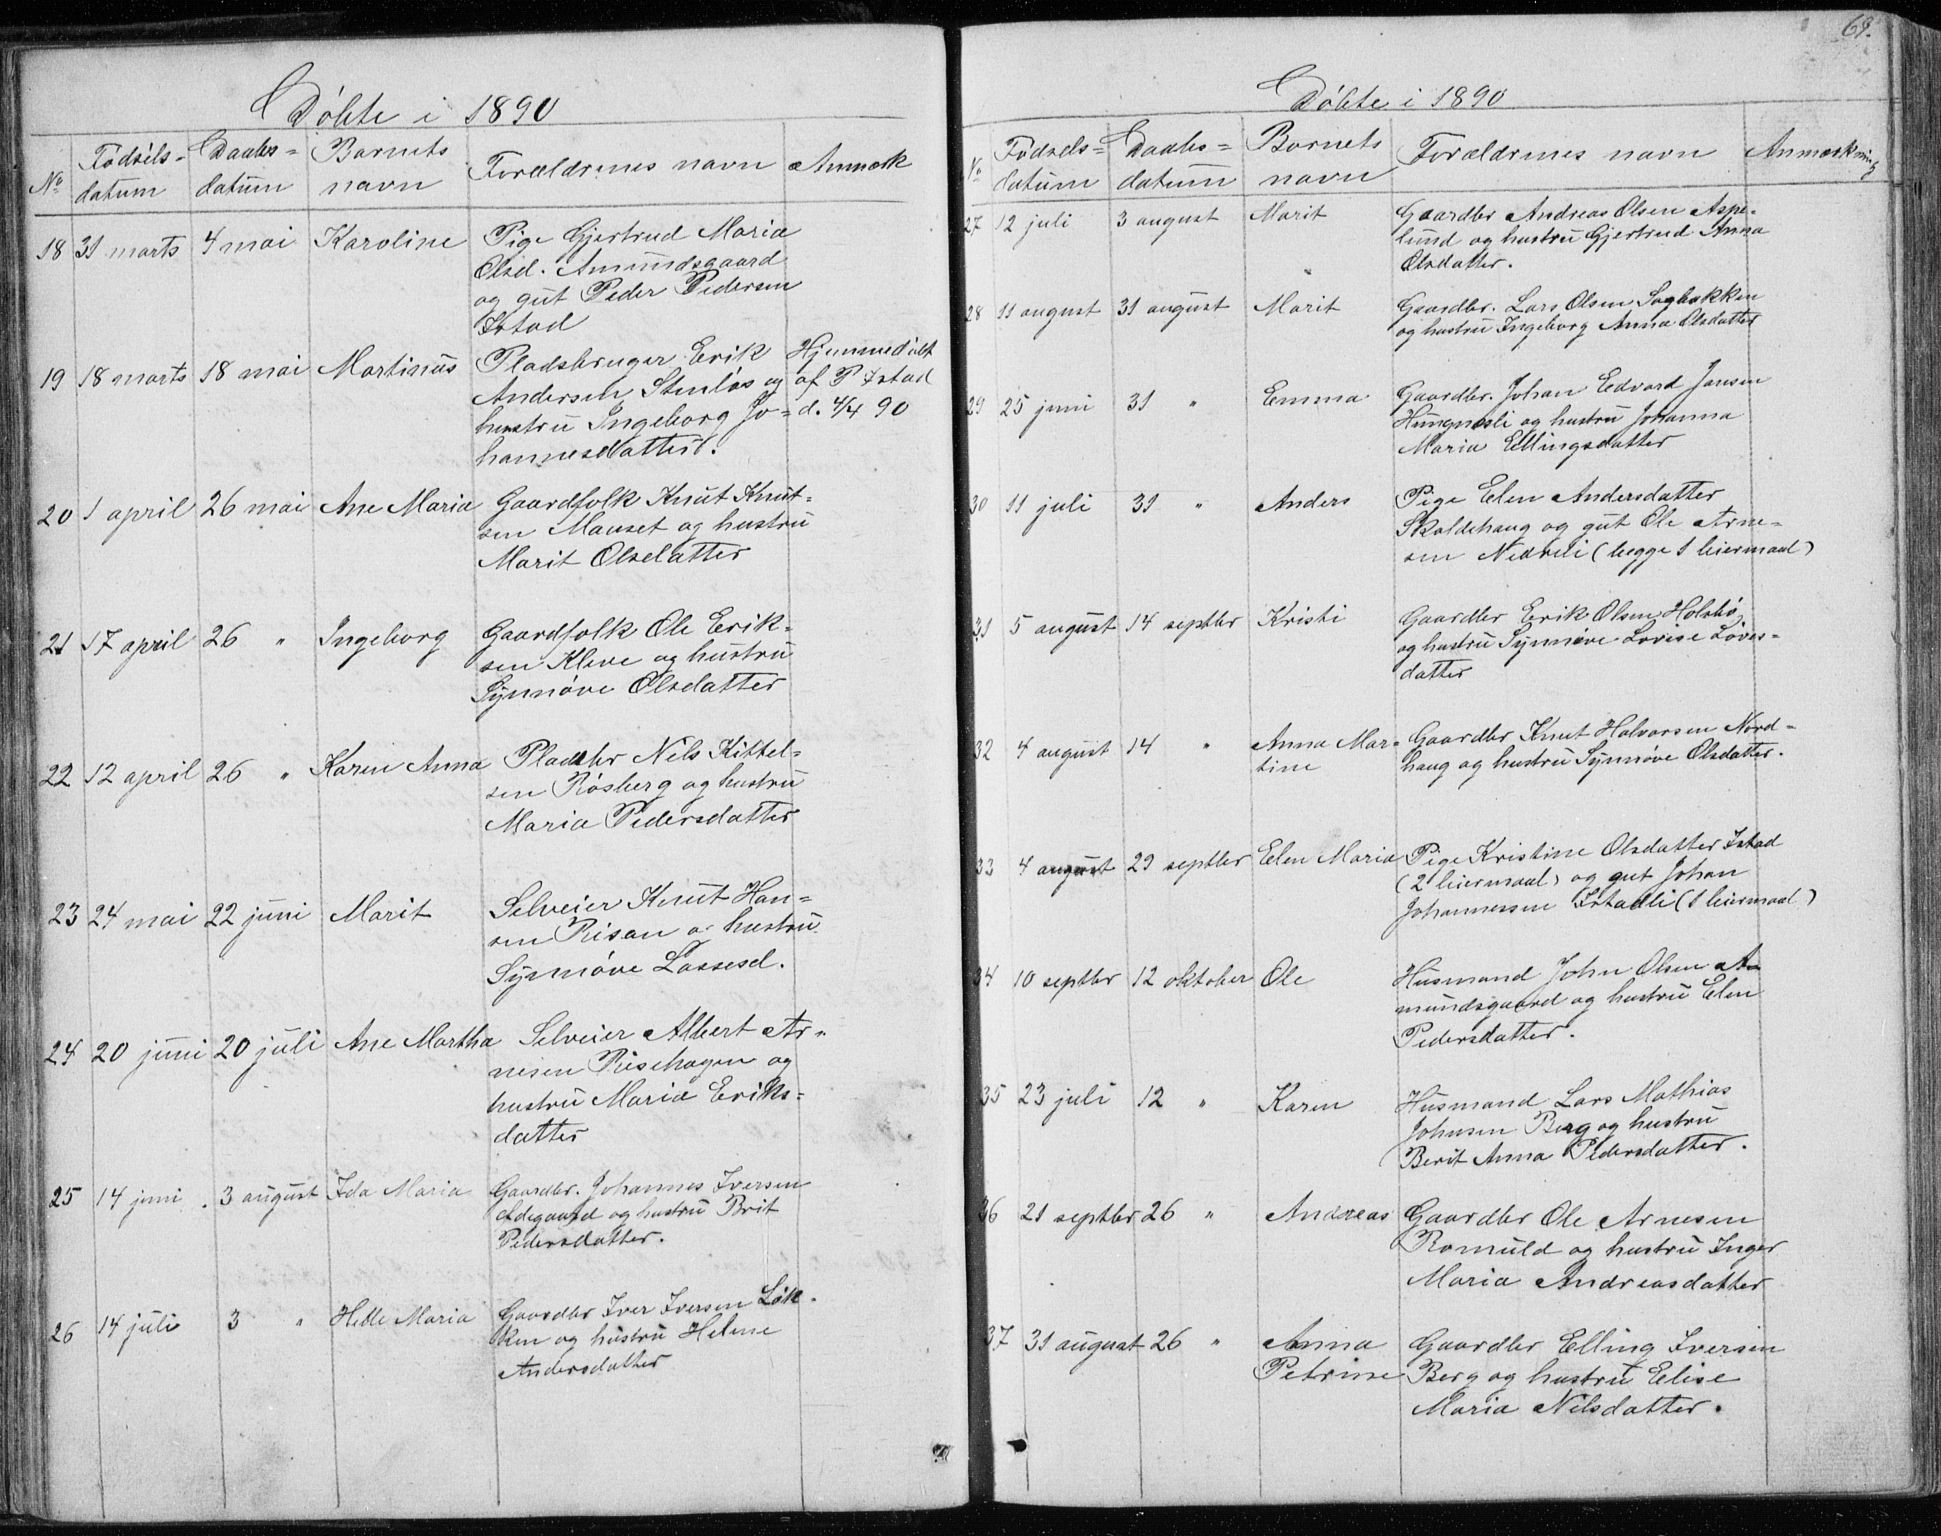 Döbte i 1890
No Fødsels- datum Daabs- datum Barnets navn Forældrenes navn Anmærk
18 31 marts 4 mai Karoline Pige Gjertrud Maria
Olsd. Amundsgaard
og gut Peder Pedersen
Istad
19 18 marts 18 mai Martinus Pladsbruger Erik Hjemmedöbt
Andersen Stenløs og af P Istad
hustru Ingeborg Jo- d. 4/4 90
hannesdatter.
20 1 april 26 mai Ane Maria Gaardfolk Knut Knut-
sen Mauset og hustru
Marit Olsdatter
21 17 april 26 " Ingeborg Gaardfolk Ole Erik-
sen Kleve og hustru
Synnøve Olsdatter
22 12 april 26 " Karen Anna Pladsbr Nils Kittel-
sen Røsberg og hustru
Maria Pedersdatter
23 24 mai 22 juni Marit Selveier Knut Han-
sen Risan o. hustru
Synnøve Lassesd.
24 20 juni 20 juli Ane Martha Selveier Albert Ar-
nesen Risehagen og
hustru Maria Eriks-
datter
25 14 juni . 3 august Ida Maria Gaardbr. Johannes Iversen
Ødegaard og hustru Brit
Pedersdatter.
26 14 juli 3 " Helle Maria Gaardbr Iver Iversen Løk-
ken og hustru Helene
Andersdatter
69.
Döbte i 1890
No Fødsels- datum Daabs- datum Barnets navn Forældrenes navn Anmærkning
27 12 juli 3 august Marit Gaardbr Andreas Olsen Aspe-
lund og hustru Gjertrud Anna
Olsdatter.
28 11 august 31 august Marit Gaardbr. Lars Olsen Sagbakken
og hustru Ingeborg Anna Olsdatter
29 25 juni 31 " Emma Gaardbr. Johan Edvard Jansen
Hungnesli og hustru Johanna
Maria Ellingsdatter
30 11 juli 31 " Anders Pige Elen Andersdatter
Skaldehaug og gut Ole Arne-
sen Nedreli (begge 1 leiermaal)
31 5 august 14 septbr Kristi Gaardbr Erik Olsen Holsbø
og hustru Synnøve Lovise Løves-
datter
32 4 august 14 " Anna Mar- Gaardbr Knut Halvorsen Nord-
tine haug og hustru Synnøve Olsdatter.
33 4 august 29 septbr Elen Maria Pige Kristine Olsdatter Istad
(2 leiermaal) og gut Johan
Johannessen Istadli (1 leiermaal)
34 10 septbr 12 oktober Ole Husmand John Olsen A-
mundsgaard og hustru Elen
Pedersdatter.
35 23 juli 12 " Karen Husmand Lars Mathias
Johnsen Berg og hustru
Berit Anna Pedersdatter.
36 21 septbr 26 " Andreas Gaardbr Ole Arnesen
Romuld og hustru Inger
Maria Andreasdatter
37 31 august 26 " Anna Gaardbr Elling Iversen
Petrine Berg og hustru Elise
Maria Nilsdatter.